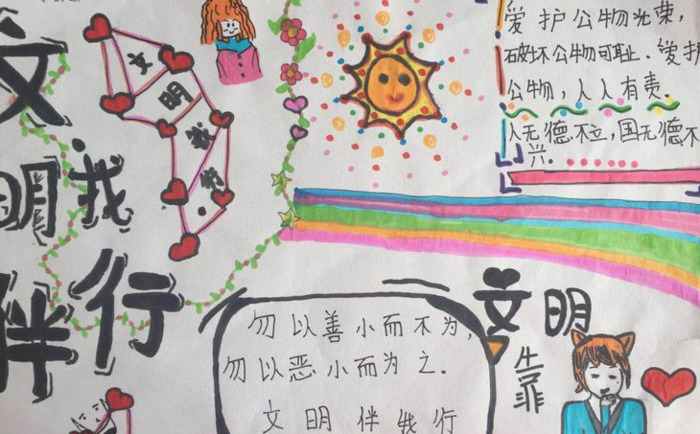 文
明 我
伴 行
文
明
我
行
爱护公物光荣,
破坏公物可耻.爱护
公物,人人有责.
人无德不立,国无德不
兴.
勿以善小而不为,
勿以恶小而为之.
文明伴我行
文明
靠